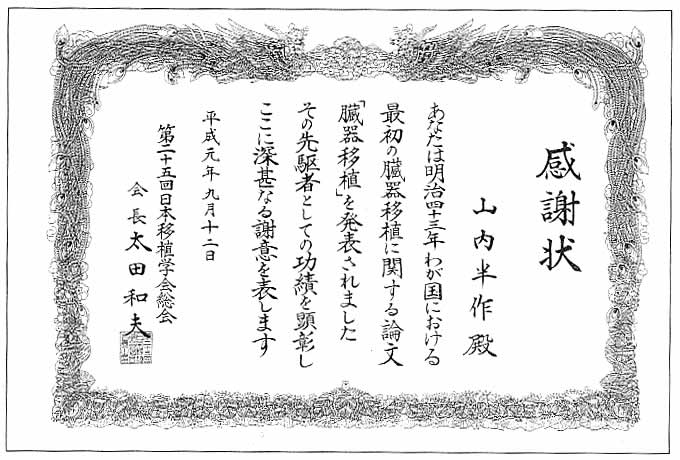 感謝状
山内半作殿
あなたは明治四十三年わが国における
最初の臓器移植に関する論文
「臓器移植」を発表されました
その先駆者としての功績を顕彰し
ここに深甚なる謝意を表します
平成元年九月十二日
第二十五回日本移植学会総会
会長 太田和夫